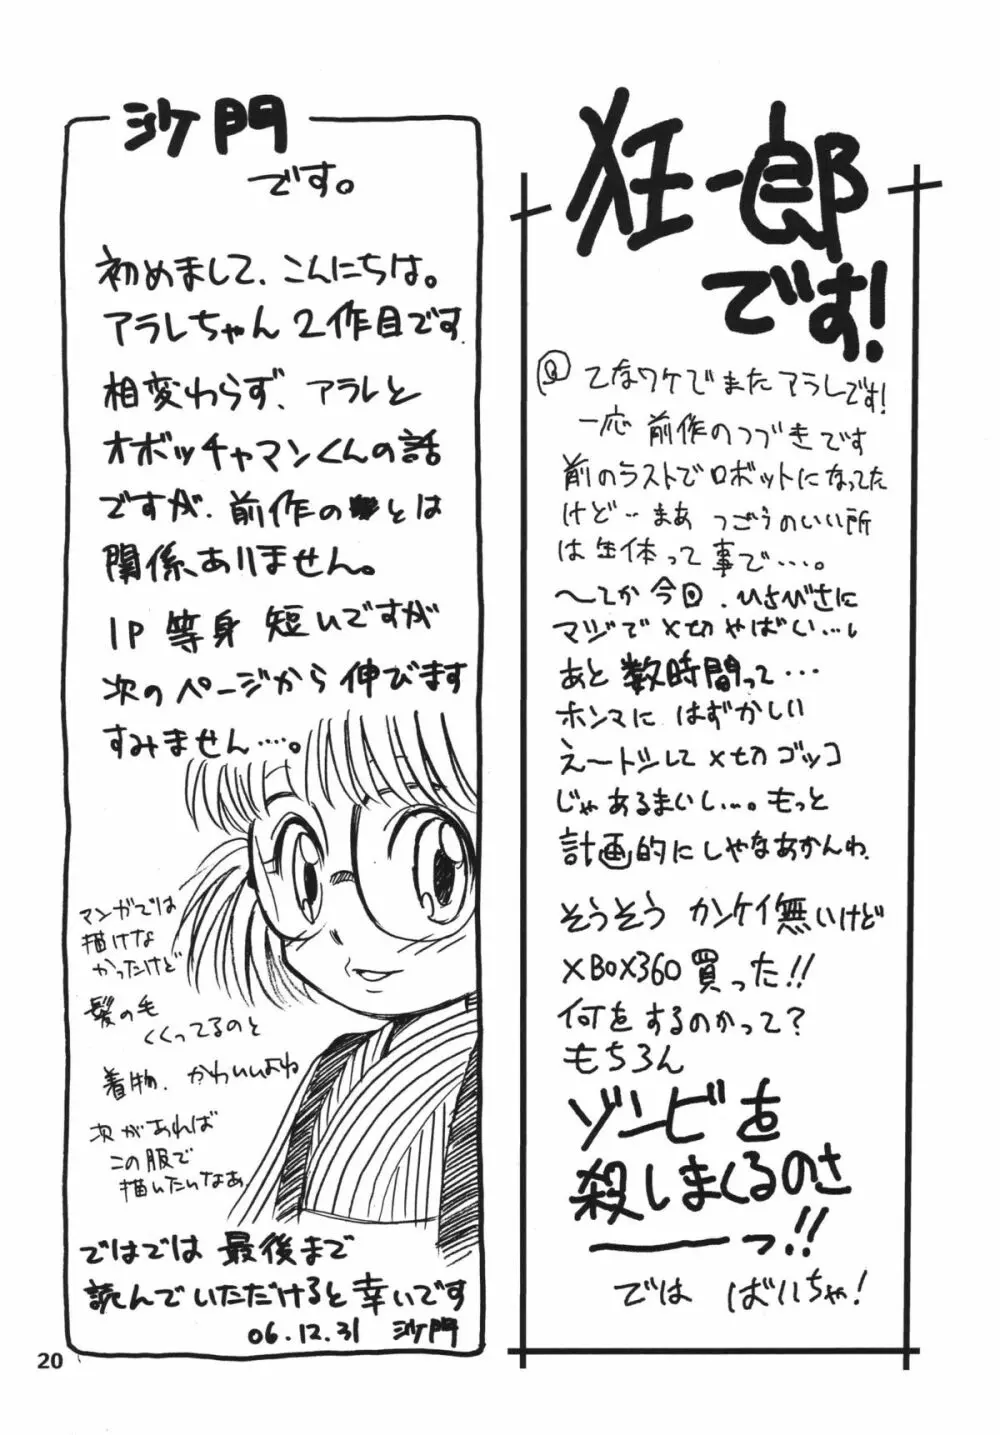 狂一郎
です!
てなワケでまたアラレです!
一応 前作のつづきです
前のラストでロボットになってた
けど‥まあ つごうのいい所
は生体って事で‥‥。
〜てか今回、ひさびさに
マジで〆切やばい…、
あと数時間って…
ホンマに はずかしい
え〜トシして〆切ゴッコ
じゃあるまいし…。もっと
計画的にしやなあかんわ
そうそう カンケイ無いけど
XBOX360買った!!
何をするのかって?
もちろん
ゾンビを
殺しまくるのさ
――っ!!
では ばいちゃ!
沙門
です。
初めまして、こんにちは。
アラレちゃん2作目です
相変わらず、アラレと
オボッチャマンくんの話
ですが、前作のとは
関係ありません。
1P 等身 短いですが
次のページから伸びます
すみません‥‥。
マンガでは
描けな
かったけど
髪の毛
くくってるのと
着物、かわいいよね
次があれば
この服で
描いたいなあ
ではでは 最後まで
読んでいただけると幸いです
06.12.31 沙門
20